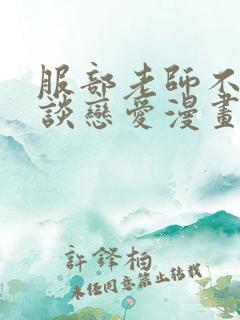 服部老師不
談戀愛漫畫
許鋒柏
未任同意禁止轉載